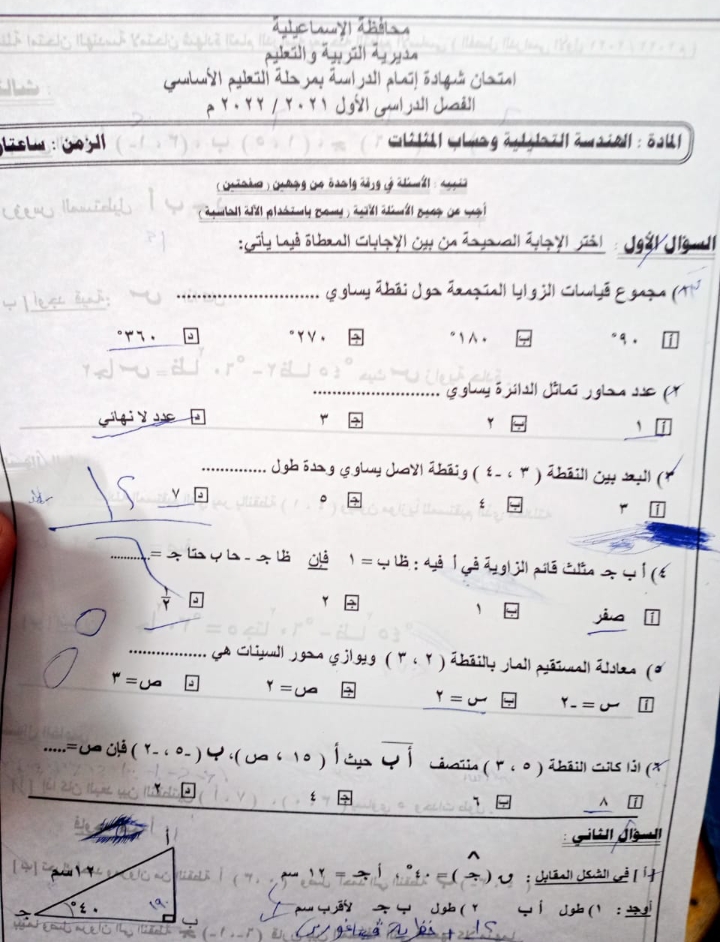 محافظة الإسماعيلية
مديرية التربية والتعليم
امتحان شهادة إتمام الدراسة بمرحلة التعليم الأساسي
الفصل الدراسى الأول ٢٠٢١ / ٢٠٢٢ م
المادة : الهندسة التحليلية وحساب المثلثات الزمن : ساعتان
تنبيه : الأسئلة في ورقة واحدة من وجهين ( صفحتين )
أجب عن جميع الأسئلة الآتية ( يسمح باستخدام الآلة الحاسبة )
السؤال الأول : اختر الإجابة الصحيحة من بين الإجابات المعطاة فيما يأتي:
١) مجموع قياسات الزوايا المتجمعة حول نقطة يساوي ............................
أ ٩٠° ب ١٨٠° ج ٢٧٠° د ٣٦٠°
٢) عدد محاور تماثل الدائرة يساوي .........................
أ ١ ب ٢ ج ٣ د عدد لا نهائي
٣) البعد بين النقطة ( ٣ ، -٤ ) ونقطة الاصل يساوي وحدة طول .............
أ ٣ ب ٤ ج ٥ د ٧
٤) أ ب جـ مثلث قائم الزاوية في أ فيه : ظا ب = ١ فإن ظا جـ - حا ب حتا جـ = ...........
أ صفر ب ١ ج ٢ د ١/٢
٥) معادلة المستقيم المار بالنقطة ( ٢ ، ٣ ) ويوازي محور السينات هي ................
أ س = -٢ ب س = ٢ ج ص = ٢ د ص = ٣
٦) اذا كانت النقطة ( ٥ ، ٣ ) منتصف أ ب حيث أ ( ١٥ ، ص )، ب ( -٥ ، -٢ ) فإن ص =.....
أ ٨ ب ٦ ج ٤ د ٢
السؤال الثاني :
[أ] في الشكل المقابل : ق ( جـ ) = ٤٠° ، أ جـ = ١٢ سم
أوجد : ١) طول أ ب ٢) طول ب جـ لأقرب سم
أ
١٢سم
٤٠°
٩٠°
جـ
ب
نظرية فيثاغورس